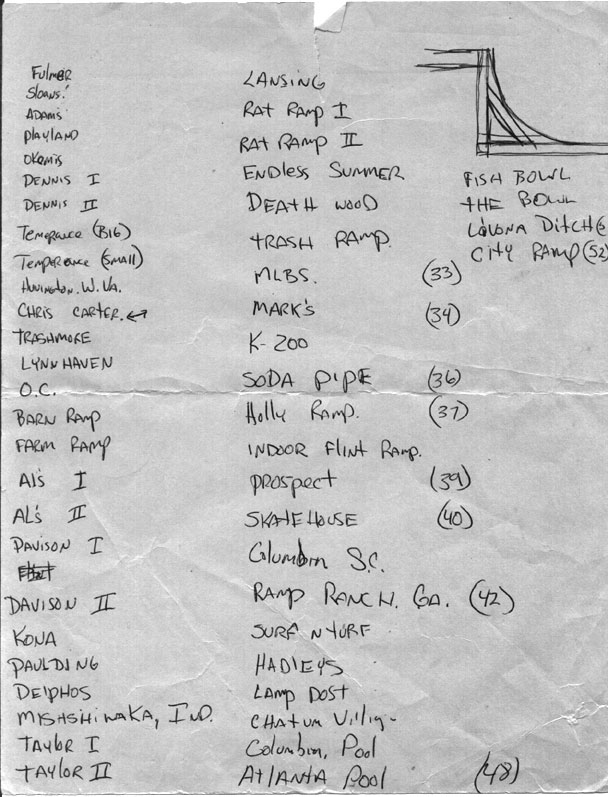 Fulmer
Sloans!
ADAMS
PLAYLAND
OKEMIS
DENNIS I
DENNIS II
Temperance (BIG)
Temperence (SMALL)
W. VA.
CHRIS CARTER.
TRASHMORE
LYNNHAVEN
O.C.
BARN RAMP
FARM RAMP
Al's I
AL's II
DAVISON I
DAVISON II
KONA
PAULDING
DElPHOS
MISHSHIWAKA, IND.
TAYlOR I
TAYlOR II
LANSING
RAt RAMP I
RAt RAMP II
ENDless SUMMER
DEATH WOOD
tRASH RAMP.
MLBS. (33)
MARK's (34)
K-200
SODA PIPE (36)
Holly RAMP. (37)
INDOOR Flint RAMP.
PROSpect (39)
SKATEHOUSE (40)
Columbia S.C.
RAMP RANCH. GA. (42)
SURF N tURF
HADlEYS
LAMP POSt
CHAtUM
Columbia, Pool
AtlANtA Pool (48)
FISH BOWL
tHE BOWL
DItCH
CIty RAMP (52)